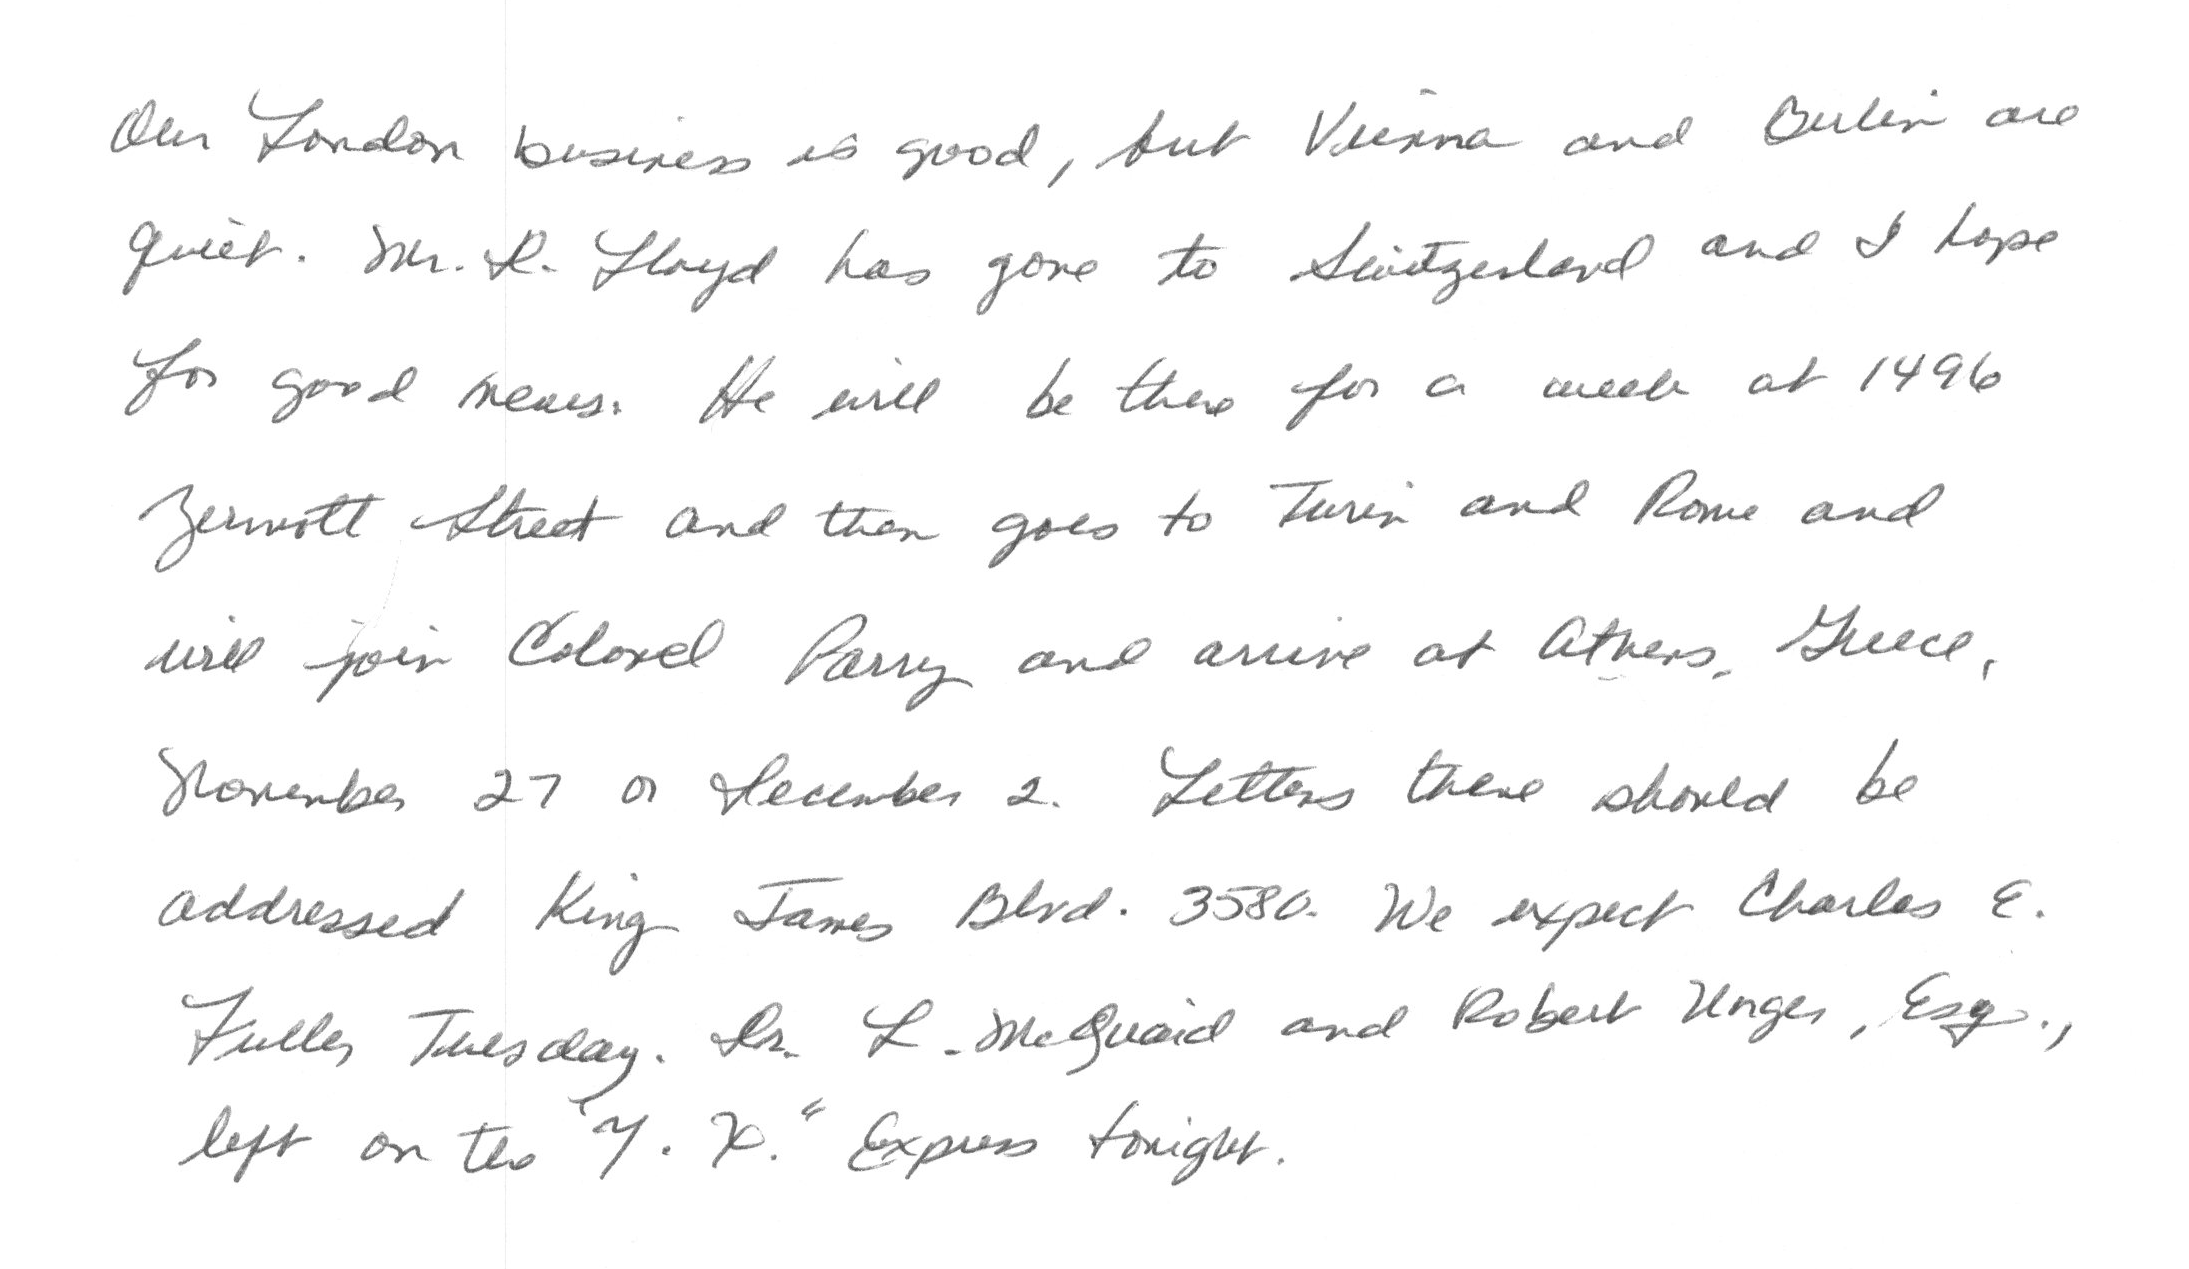 Our London business is good, but Vienna and Berlin are
quiet. Mr. D. Lloyd has gone to Switzerland and I hope
for good news. He will be there for a week at 1496
Zermott Street and then goes to Turin and Rome and
will join Colonel Parry and arrive at Athens, Greece,
November 27 or December 2. Letters there should be
addressed King James Blvd. 3580. We expect Charles E.
Fuller Tuesday. Dr. L. McQuaid and Robert Unger, Esq.,
left on the "Y. X." Express tonight.